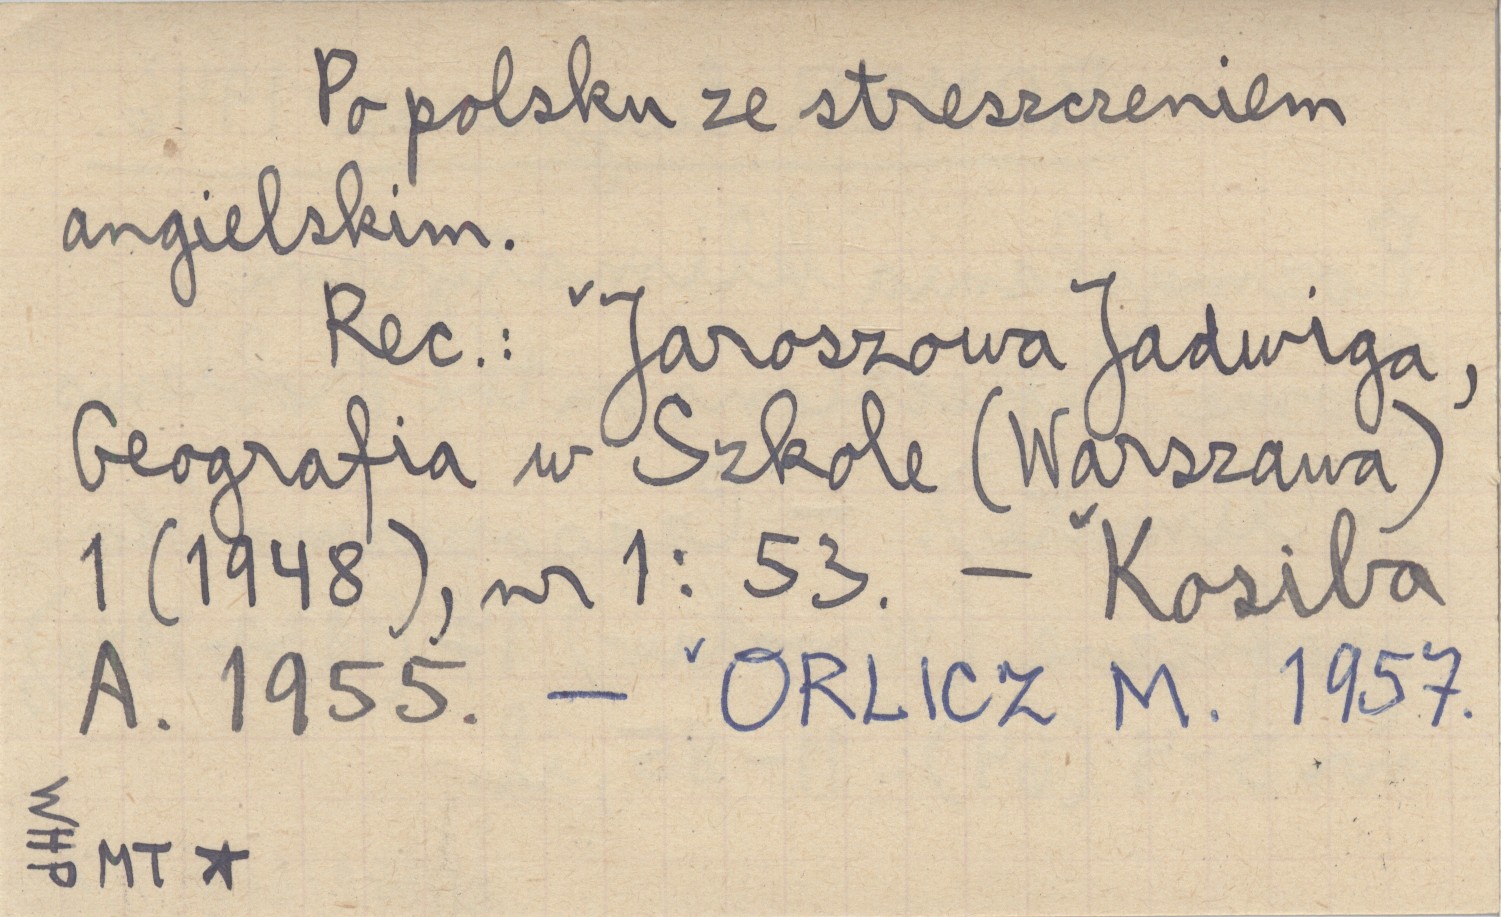 Po polsku ze streszczeniem
angielskim.
Rec.: ˇJaroszowa Jadwiga,
Geografia w Szkole (Warszawa)
1 (1948), nr 1: 53. — ˇKosiba
A. 1955. — ˇORLICZ M. 1957.
WHP
MT ★